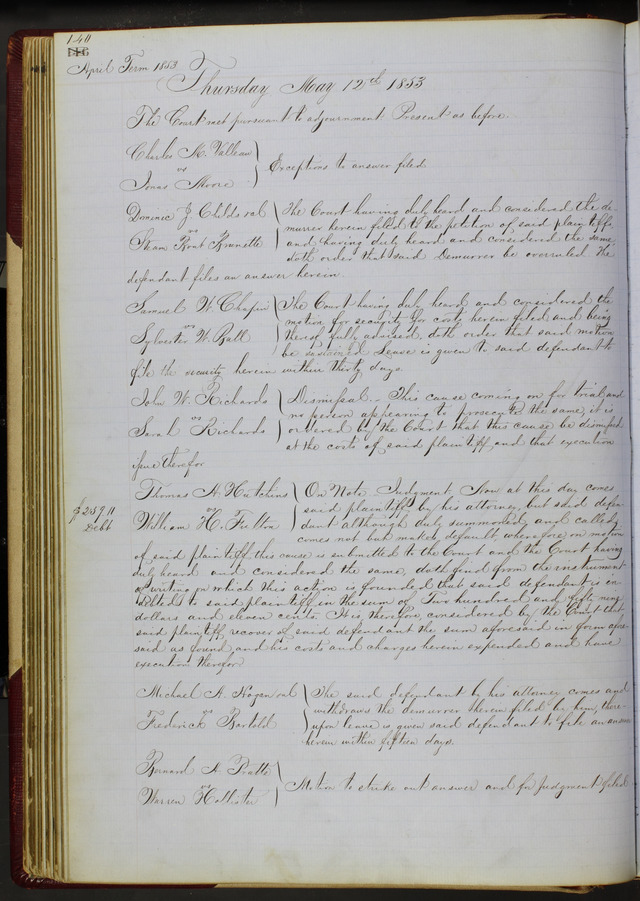 140
April Term 1853
Thursday May 12th 1853
The Court met pursuant to adjournment. Present as before.
Charles M. Valleau
vs
Jonas Moore
Exceptions to answer filed.
Dominic J. Childs et al
vs
Steam Boat Brunette
The Court having duly heard and considered the de-
murrer herein filed to the petition of said plaintiff
and having duly heard and considered the same
doth order that said Demurrer be overruled The
defendant files an answer herein
Samuel W. Chapin
vs
Sylvester W. Ball
The Court having duly heard and considered the
motion for security for costs herein filed and being
thereof fully advised, doth order that said motion
be sustained Leave is given to said defendant to
file the security herein within thirty days.
John W. Richards
vs
Sarah Richards
Dismissal - This cause coming on for trial, and
no person appearing to prosecute the same, it is
ordered by the Court that this cause be dismissed
at the costs of said plaintiff and that execution
issue therefor
Thomas H. Hutchins
vs
William H. Fulton
$259 11
Debt
On Note. Judgment. Now at this day comes
said plaintiff by his attorney, but said defen-
dant although duly summoned and called,
comes not but makes default, wherefore, on motion
of said plaintiff, this cause is submitted to the Court and the Court having
duly heard and considered the same, doth find from the instrument
of writing on which this action is founded that said defendant is in-
debted to said plaintiff in the sum of Two hundred and fifty nine
dollars and eleven cents. It is therefore considered by the Court that
said plaintiff, recover of said defendant the sum aforesaid in form afore-
said as found and his costs and charges herein expended and have
execution therefor
Michael A. et al
vs
Frederick Bartold
The said defendant by his attorney comes and
withdraws the demurrer herein filed by him, there-
upon leave is given said defendant to file an answer
herein within fifteen days.
Bernard A Pratte
vs
Warren Hollister
Motion to strike out answer and for judgment filed